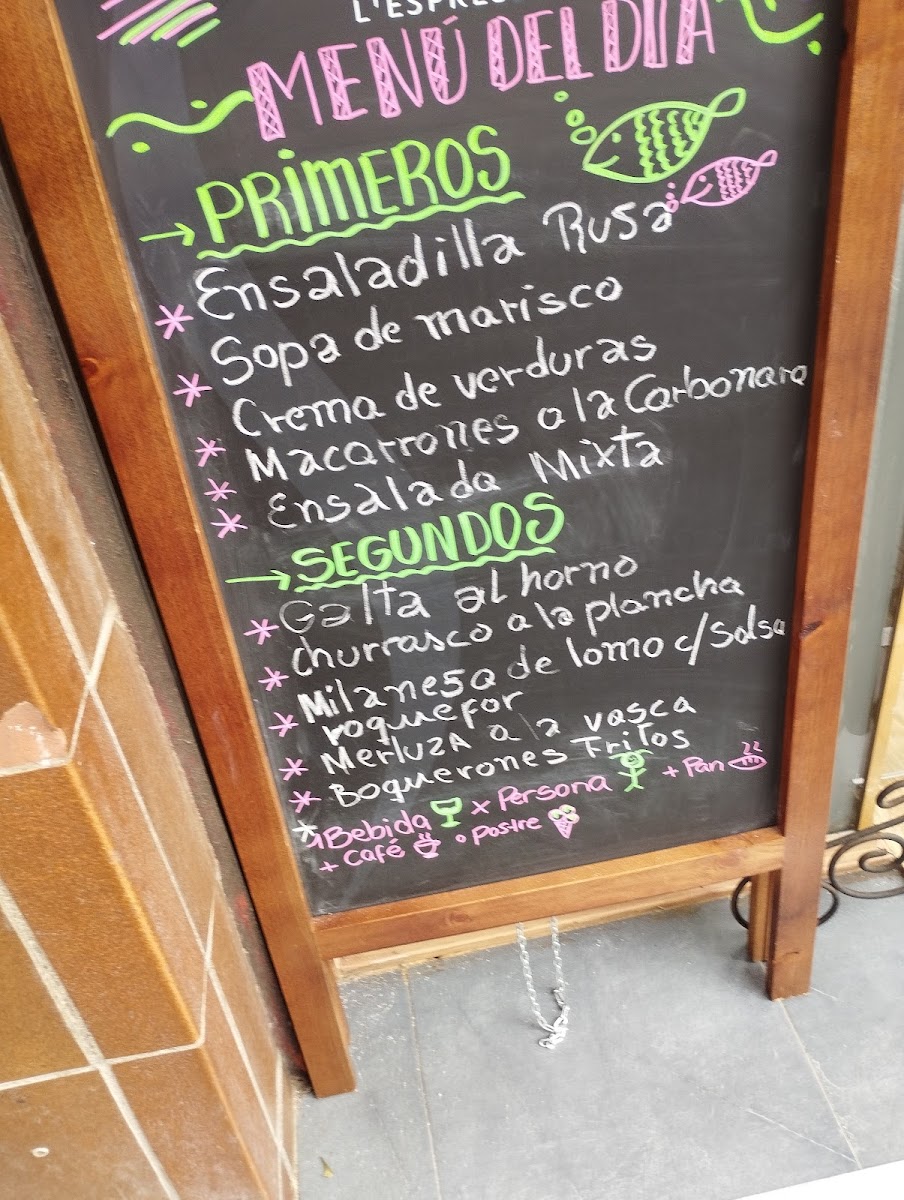 MENÚ DEL DIA
→ PRIMEROS
Ensaladilla Rusa
* Sopa de marisco
* Crema de verduras
* Macarrones a la Carbonara
* Ensalada Mixta
*
→ SEGUNDOS
* Galta al horno
* Churrasco a la plancha
* Milanesa de lomo c/ salsa
roquefor
* Merluza a la vasca
* Boquerones Fritos
* 1 Bebida x Persona + Pan
+ Café o postre